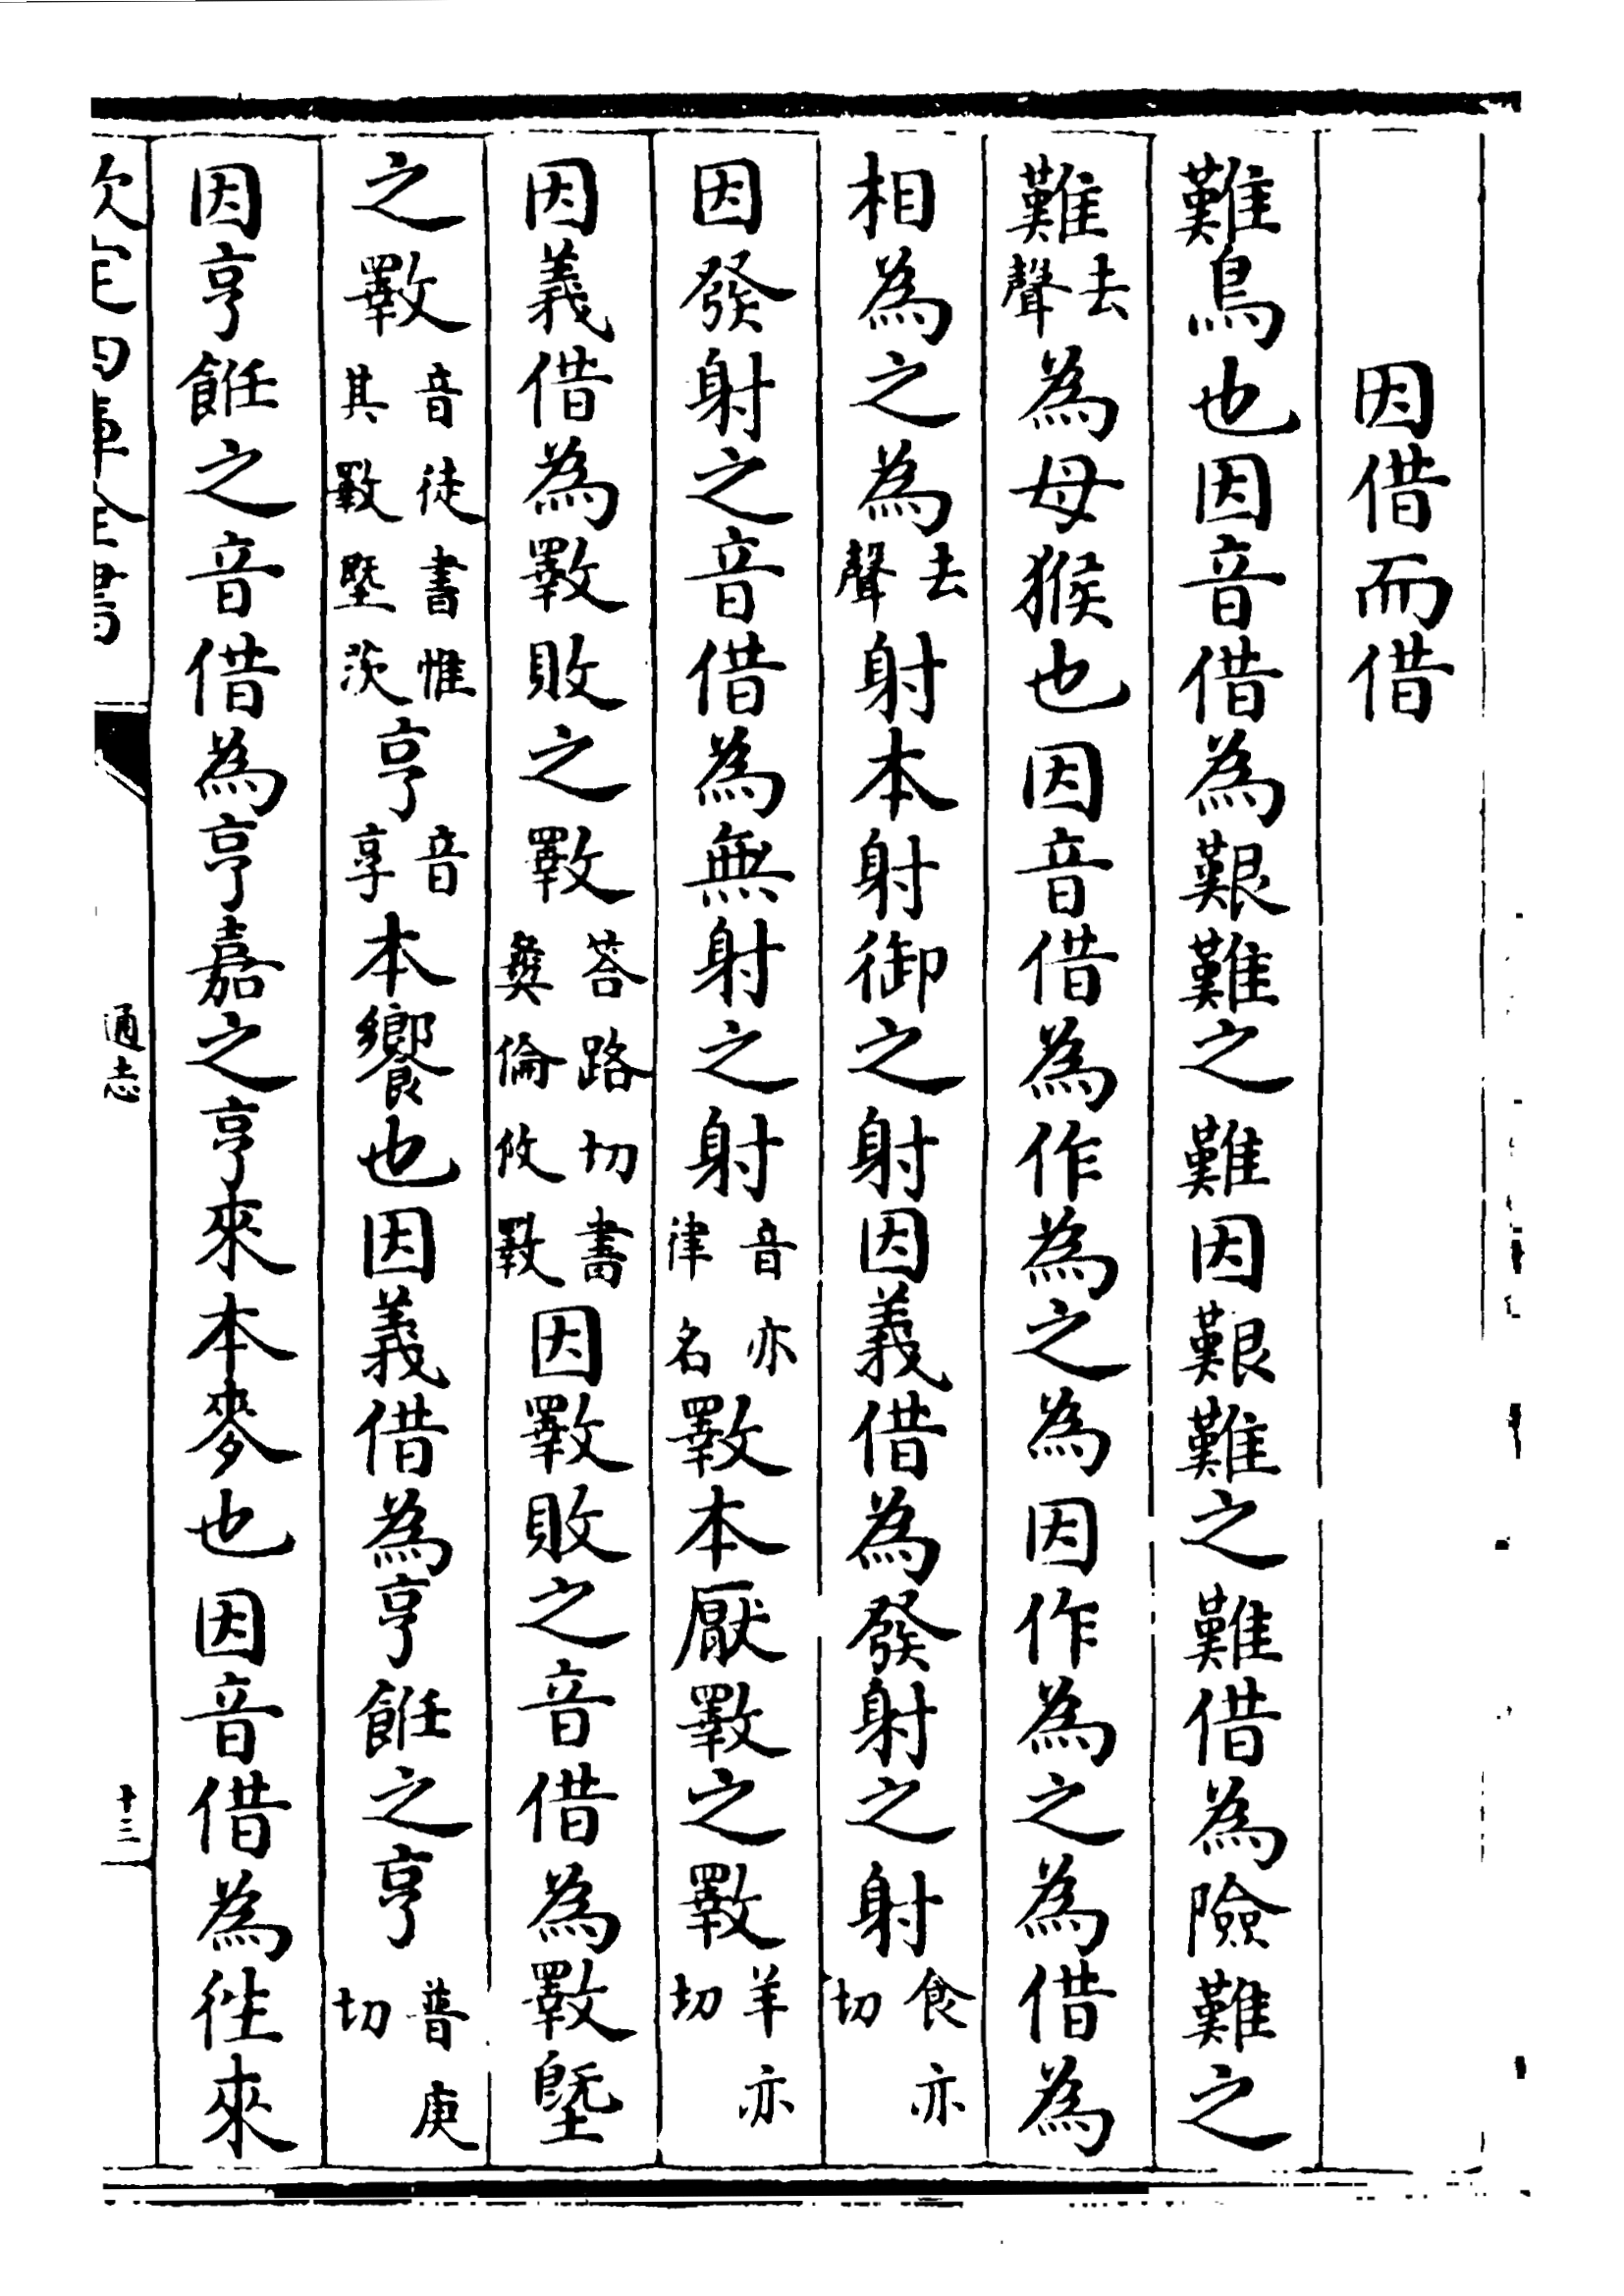 因借而借
難鳥也因音借為艱難之難因艱難之難借為險難之
難去聲為母猴也因音借為作為之為因作為之為借為
相為之為去聲射本射御之射因義借為發射之射食亦切
因發射之音借為無射之射音亦律名斁本厭斁之斁羊亦切
因義借為斁敗之斁荅路切書彝倫攸斁因斁敗之音借為斁塈
之斁音徒書惟其斁塈茨亨音享本饗也因義借為亨飪之亨普庚切
因亨飪之音借為亨嘉之亨來本麥也因音借為徃來
欽定四庫全書
通志
十三